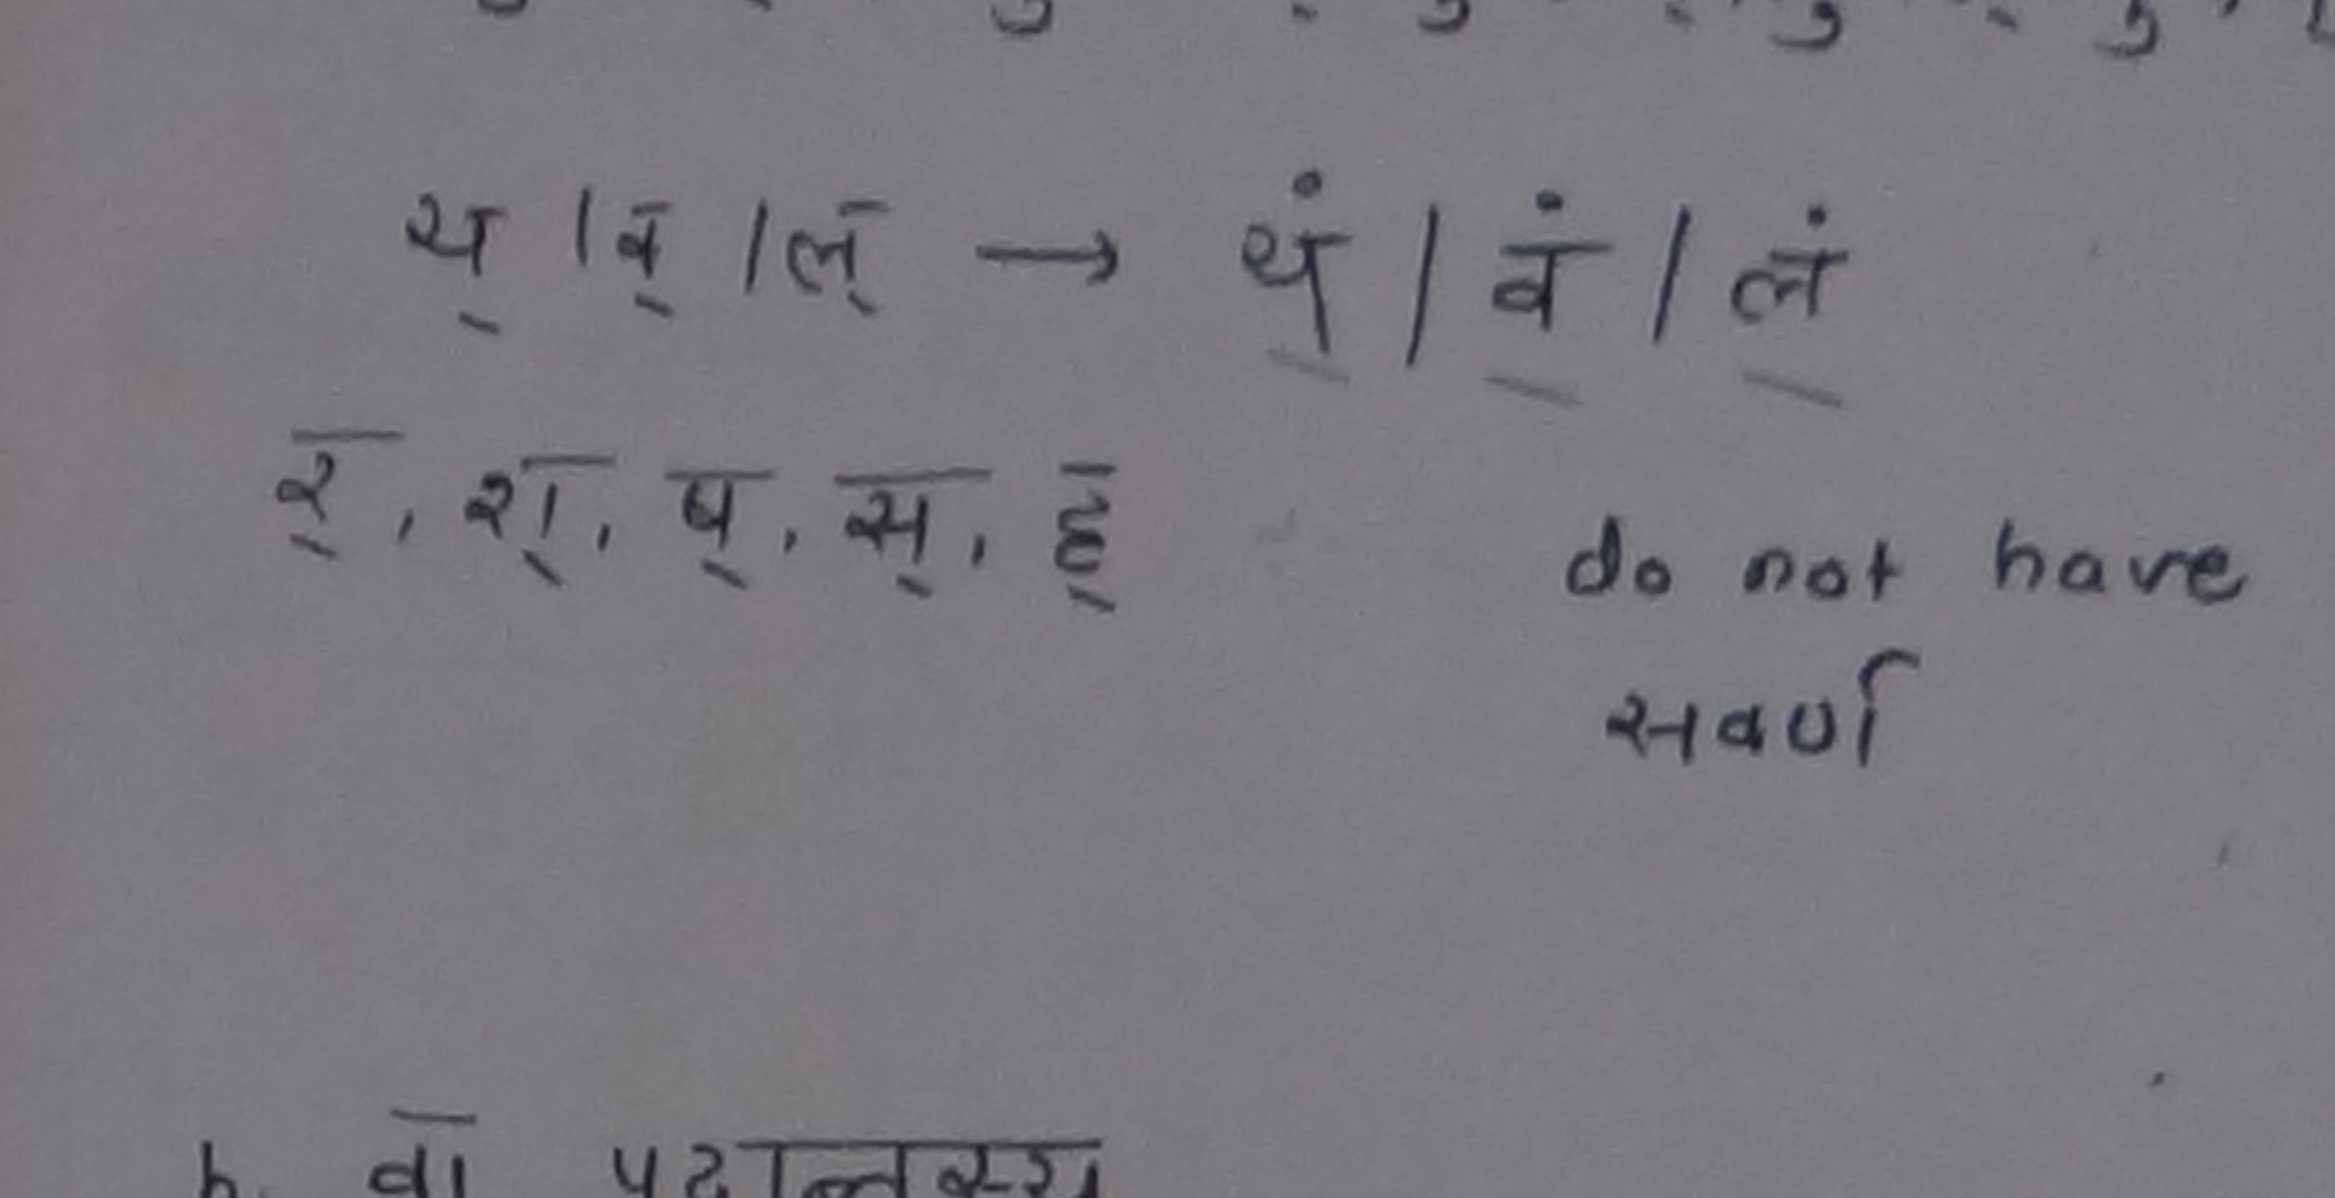 य् / व् / ल् → यं / वं / लं
र्, श्, ष्, स्, ह् do not have
सवर्ण
b. वा पदान्तस्य